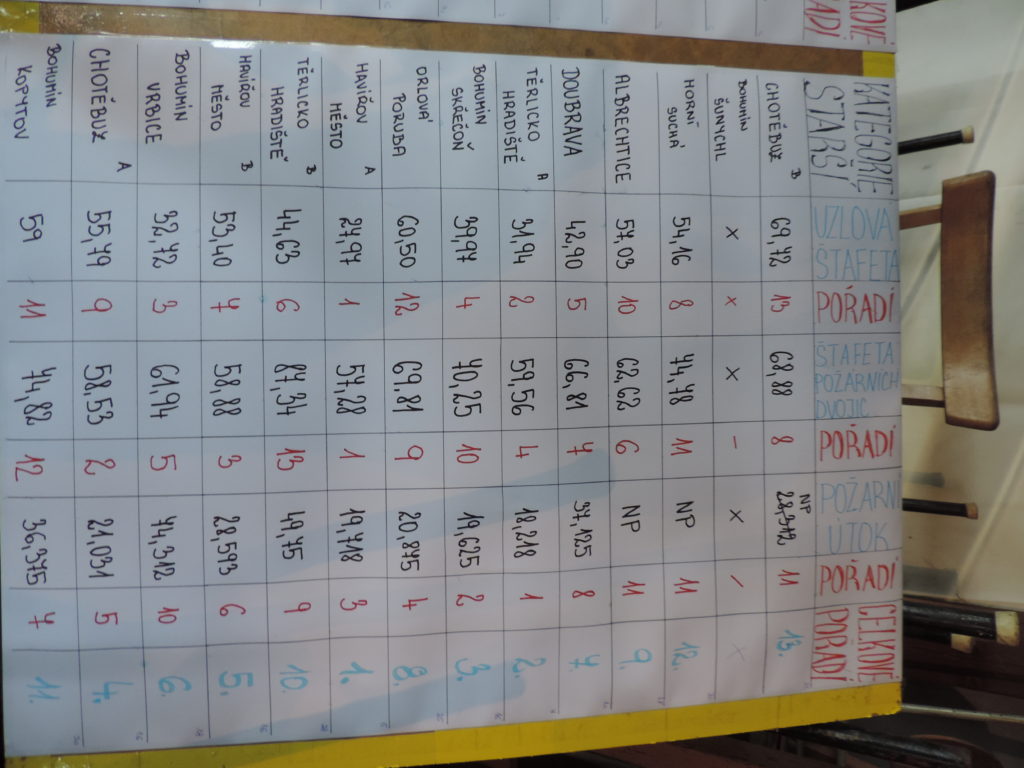 KOVÉ
ŘADÍ
KATEGORIE STARŠÍ | UZLOVÁ ŠTAFETA | POŘADÍ | ŠTAFETA POŽÁRNÍCH DVOJIC | POŘADÍ | POŽÁRNÍ ÚTOK | POŘADÍ | CELKOVÉ POŘADÍ
CHOTĚBUZ B | 69,72 | 13 | 68,88 | 8 | NP | 11 | 13.
BOHUMÍN ŠUNYCHL | x | x | x | – | x | / | x
HORNÍ SUCHÁ | 54,16 | 8 | 74,78 | 11 | NP | 11 | 12.
ALBRECHTICE | 57,03 | 10 | 62,62 | 6 | NP | 11 | 9.
DOUBRAVA | 42,90 | 5 | 66,81 | 7 | 37,125 | 8 | 7.
TĚRLICKO HRADIŠTĚ A | 31,94 | 2 | 59,56 | 4 | 18,218 | 1 | 2.
BOHUMÍN SKŘEČOŇ | 39,97 | 4 | 70,25 | 10 | 19,625 | 2 | 3.
ORLOVÁ PORUBA | 60,50 | 12 | 69,81 | 9 | 20,875 | 4 | 8.
HAVÍŘOV MĚSTO A | 24,97 | 1 | 57,28 | 1 | 19,718 | 3 | 1.
TĚRLICKO HRADIŠTĚ B | 44,63 | 6 | 87,34 | 13 | 49,75 | 9 | 10.
HAVÍŘOV MĚSTO B | 53,40 | 7 | 58,88 | 3 | 28,593 | 6 | 5.
BOHUMÍN VRBICE | 32,72 | 3 | 61,94 | 5 | 74,312 | 10 | 6.
CHOTĚBUZ A | 55,79 | 9 | 58,53 | 2 | 21,031 | 5 | 4.
BOHUMÍN KOPYTOV | 59 | 11 | 74,82 | 12 | 36,375 | 7 | 11.